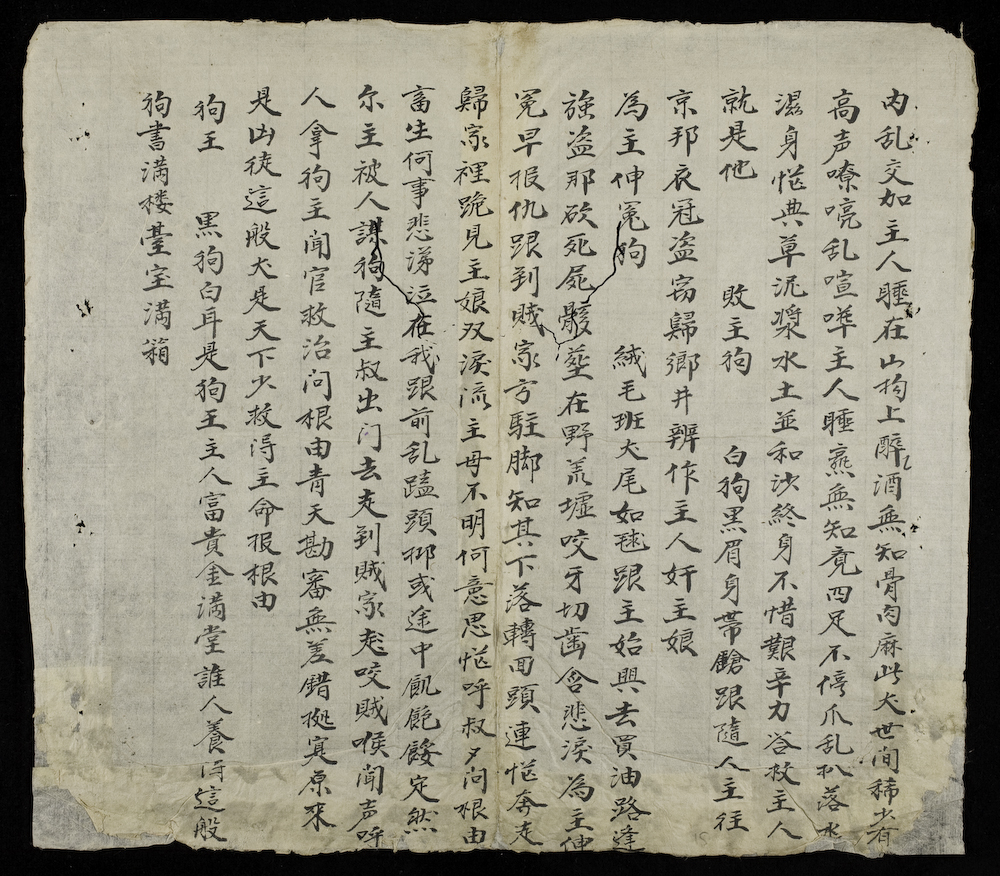 内乱交加主人睡在山构上醉酒無知骨肉麻此犬世间稀少有
高声嘹喨乱喧嘩主人睡熹無知竟四足不停爪乱扒落水
濕身恾與草泥漿水土並和沙終身不惜艱辛力答救主人
就是他　敗主狗　白狗黑眉身帶鎗跟隨人主往
京邦衣冠盗窃歸鄉井辨作主人奸主娘
為主伸冤狗　絨毛班犬尾如毬跟主始興去買油路逢
強盗那砍死屍骸塟在野荒墟咬牙切齒含悲淚為主伸
冤早报仇跟到賊家方駐脚知其下落轉回頭連恾奔走
歸家裡跪見主娘双淚流主母不明何意思恾呼叔夕问根由
畜生何事悲涕泣在我跟前乱蹅頭挪或途中飢飽餒定然
尔主被人謀狗隨主叔出门去走到賊家赱咬賊喉闻声呼
人拿狗主闻官救治问根由青天勘審無差錯拠寔原來
是凶徒這般犬是天下少救得主命报根由
狗王　黑狗白耳是狗王主人富貴金满堂誰人養得這般
狗書满楼臺室满箱